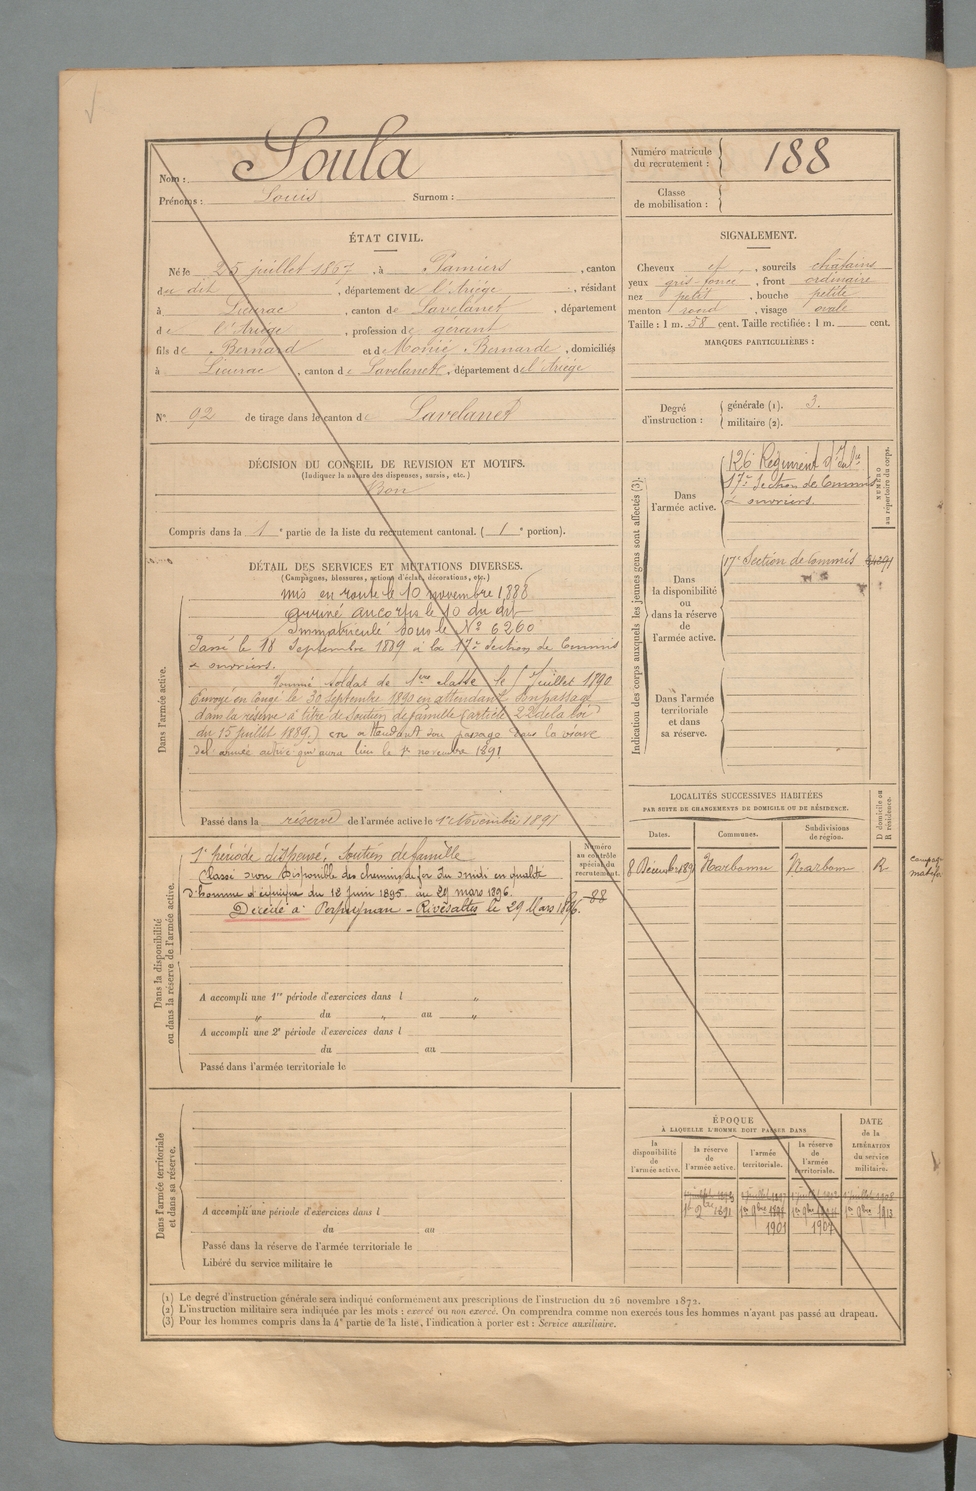 Nom : Soula
Prénoms : Louis Surnom :
Numéro matricule du recrutement : 188
Classe de mobilisation :
ÉTAT CIVIL.
Né le 25 juillet 1867, à Pamiers, canton
du dit, département de l'Ariège, résidant
à Lieurac, canton de Lavelanet, département
de l'Ariège, profession de gérant
fils de Bernard et de Monié Bernarde, domiciliés
à Lieurac, canton de Lavelanet, département de l'Ariège
N° 92 de tirage dans le canton de Lavelanet
SIGNALEMENT.
Cheveux et, sourcils châtains
yeux gris-foncé, front ordinaire
nez petit, bouche petite
menton rond, visage ovale
Taille : 1 m. 58 cent. Taille rectifiée : 1 m. cent.
MARQUES PARTICULIÈRES :
Degré d'instruction : générale (1). 3.
militaire (2).
DÉCISION DU CONSEIL DE REVISION ET MOTIFS.
(Indiquer la nature des dispenses, sursis, etc.)
Bon
Compris dans la 1e partie de la liste du recrutement cantonal. ( 1e portion).
DÉTAIL DES SERVICES ET MUTATIONS DIVERSES.
(Campagnes, blessures, actions d'éclat, décorations, etc.)
Dans l'armée active.
mis en route le 10 novembre 1888
arrivé au corps le 10 du dit
Immatriculé sous le N° 6260
Passé le 18 Septembre 1889 à la 17e Section de Commis
& ouvriers.
Nommé soldat de 1ere classe le 1 Juillet 1890
Envoyé en Congé le 30 Septembre 1890 en attendant son passage
dans la réserve à titre de Soutien de famille (article 22 de la loi
du 15 juillet 1889.) en attendant son passage dans la réserve
de l'armée active qui aura lieu le 1r novembre 1891
Passé dans la réserve de l'armée active le 1r Novembre 1891
Indication des corps auxquels les jeunes gens sont affectés (3).
NUMÉRO au répertoire du corps.
Dans l'armée active.
126e Régiment d'Infie
17e Section de Commis
& ouvriers.
Dans la disponibilité ou dans la réserve de l'armée active.
17e Section de Commis
Dans l'armée territoriale et dans sa réserve.
LOCALITÉS SUCCESSIVES HABITÉES
PAR SUITE DE CHANGEMENTS DE DOMICILE OU DE RÉSIDENCE.
Dates. Communes. Subdivisions de région. D domicile ou R résidence.
Narbonne Narbonne R
Dans la disponibilité ou dans la réserve de l'armée active.
Numéro au contrôle spécial du recrutement.
88
1e période dispensé. Soutien de famille
Classé non disponible des chemins de fer du midi en qualité
d'homme d'équipe du 12 Juin 1895 au 29 mars 1896.
Décédé à Perpignan - Rivesaltes le 29 Mars 1896.
A accompli une 1re période d'exercices dans l "
" du " au "
A accompli une 2e période d'exercices dans l
du au
Passé dans l'armée territoriale le
Dans l'armée territoriale et dans sa réserve.
A accompli une période d'exercices dans l
du au
Passé dans la réserve de l'armée territoriale le
Libéré du service militaire le
ÉPOQUE
À LAQUELLE L'HOMME DOIT PASSER DANS
la disponibilité de l'armée active.
la réserve de l'armée active.
l'armée territoriale.
la réserve de l'armée territoriale.
DATE de la LIBÉRATION du service militaire.
1r 9bre 1891 1er 9bre 1er 9bre 1er 9bre 1913
1901 1907
(1) Le degré d'instruction générale sera indiqué conformément aux prescriptions de l'instruction du 26 novembre 1872.
(2) L'instruction militaire sera indiquée par les mots : exercé ou non exercé. On comprendra comme non exercés tous les hommes n'ayant pas passé au drapeau.
(3) Pour les hommes compris dans la 4e partie de la liste, l'indication à porter est : Service auxiliaire.